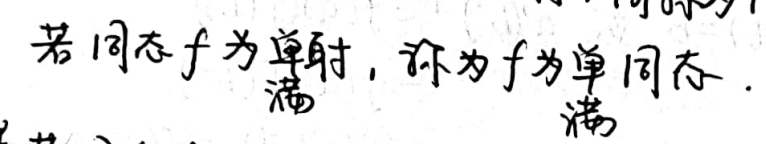 若同态f为单射，称为f为单同态．
满 满